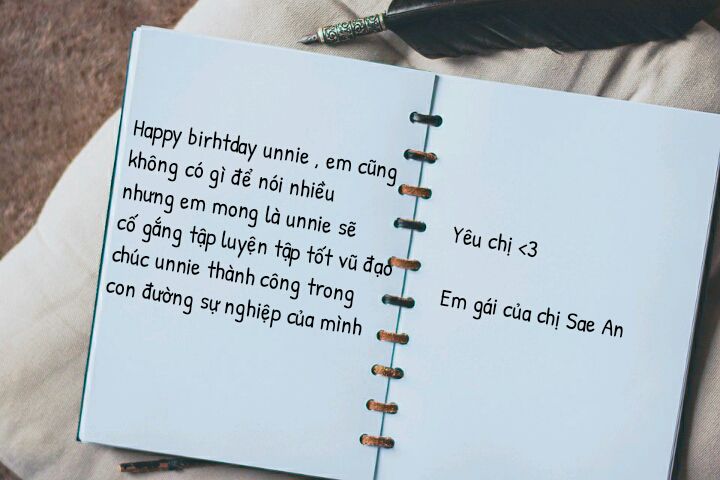 Happy birhtday unnie , em cũng
không có gì để nói nhiều
nhưng em mong là unnie sẽ
cố gắng tập luyện tập tốt vũ đạo
chúc unnie thành công trong
con đường sự nghiệp của mình
Yêu chị <3
Em gái của chị Sae An